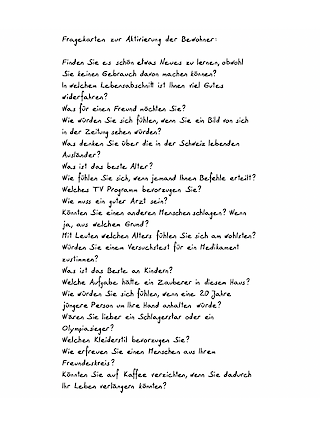 Fragekarten zur Aktivierung der Bewohner:
Finden Sie es schön etwas Neues zu lernen, obwohl
Sie keinen Gebrauch davon machen können?
In welchem Lebensabschnitt ist Ihnen viel Gutes
widerfahren?
Was für einen Freund möchten Sie?
Wie würden Sie sich fühlen, wenn Sie ein Bild von sich
in der Zeitung sehen würden?
Was denken Sie über die in der Schweiz lebenden
Ausländer?
Was ist das beste Alter?
Wie fühlen Sie sich, wenn jemand Ihnen Befehle erteilt?
Welches TV Programm bevorzugen Sie?
Wie muss ein guter Arzt sein?
Könnten Sie einen anderen Menschen schlagen? Wenn
ja, aus welchem Grund?
Mit Leuten welchen Alters fühlen Sie sich am wohlsten?
Würden Sie einem Versuchstest für ein Medikament
zustimmen?
Was ist das Beste an Kindern?
Welche Aufgabe hätte ein Zauberer in diesem Haus?
Wie würden Sie sich fühlen, wenn eine 20 Jahre
jüngere Person um Ihre Hand anhalten würde?
Wären Sie lieber ein Schlagerstar oder ein
Olympiasieger?
Welchen Kleiderstil bevorzugen Sie?
Wie erfreuen Sie einen Menschen aus Ihrem
Freundeskreis?
Könnten Sie auf Kaffee verzichten, wenn Sie dadurch
Ihr Leben verlängern könnten?